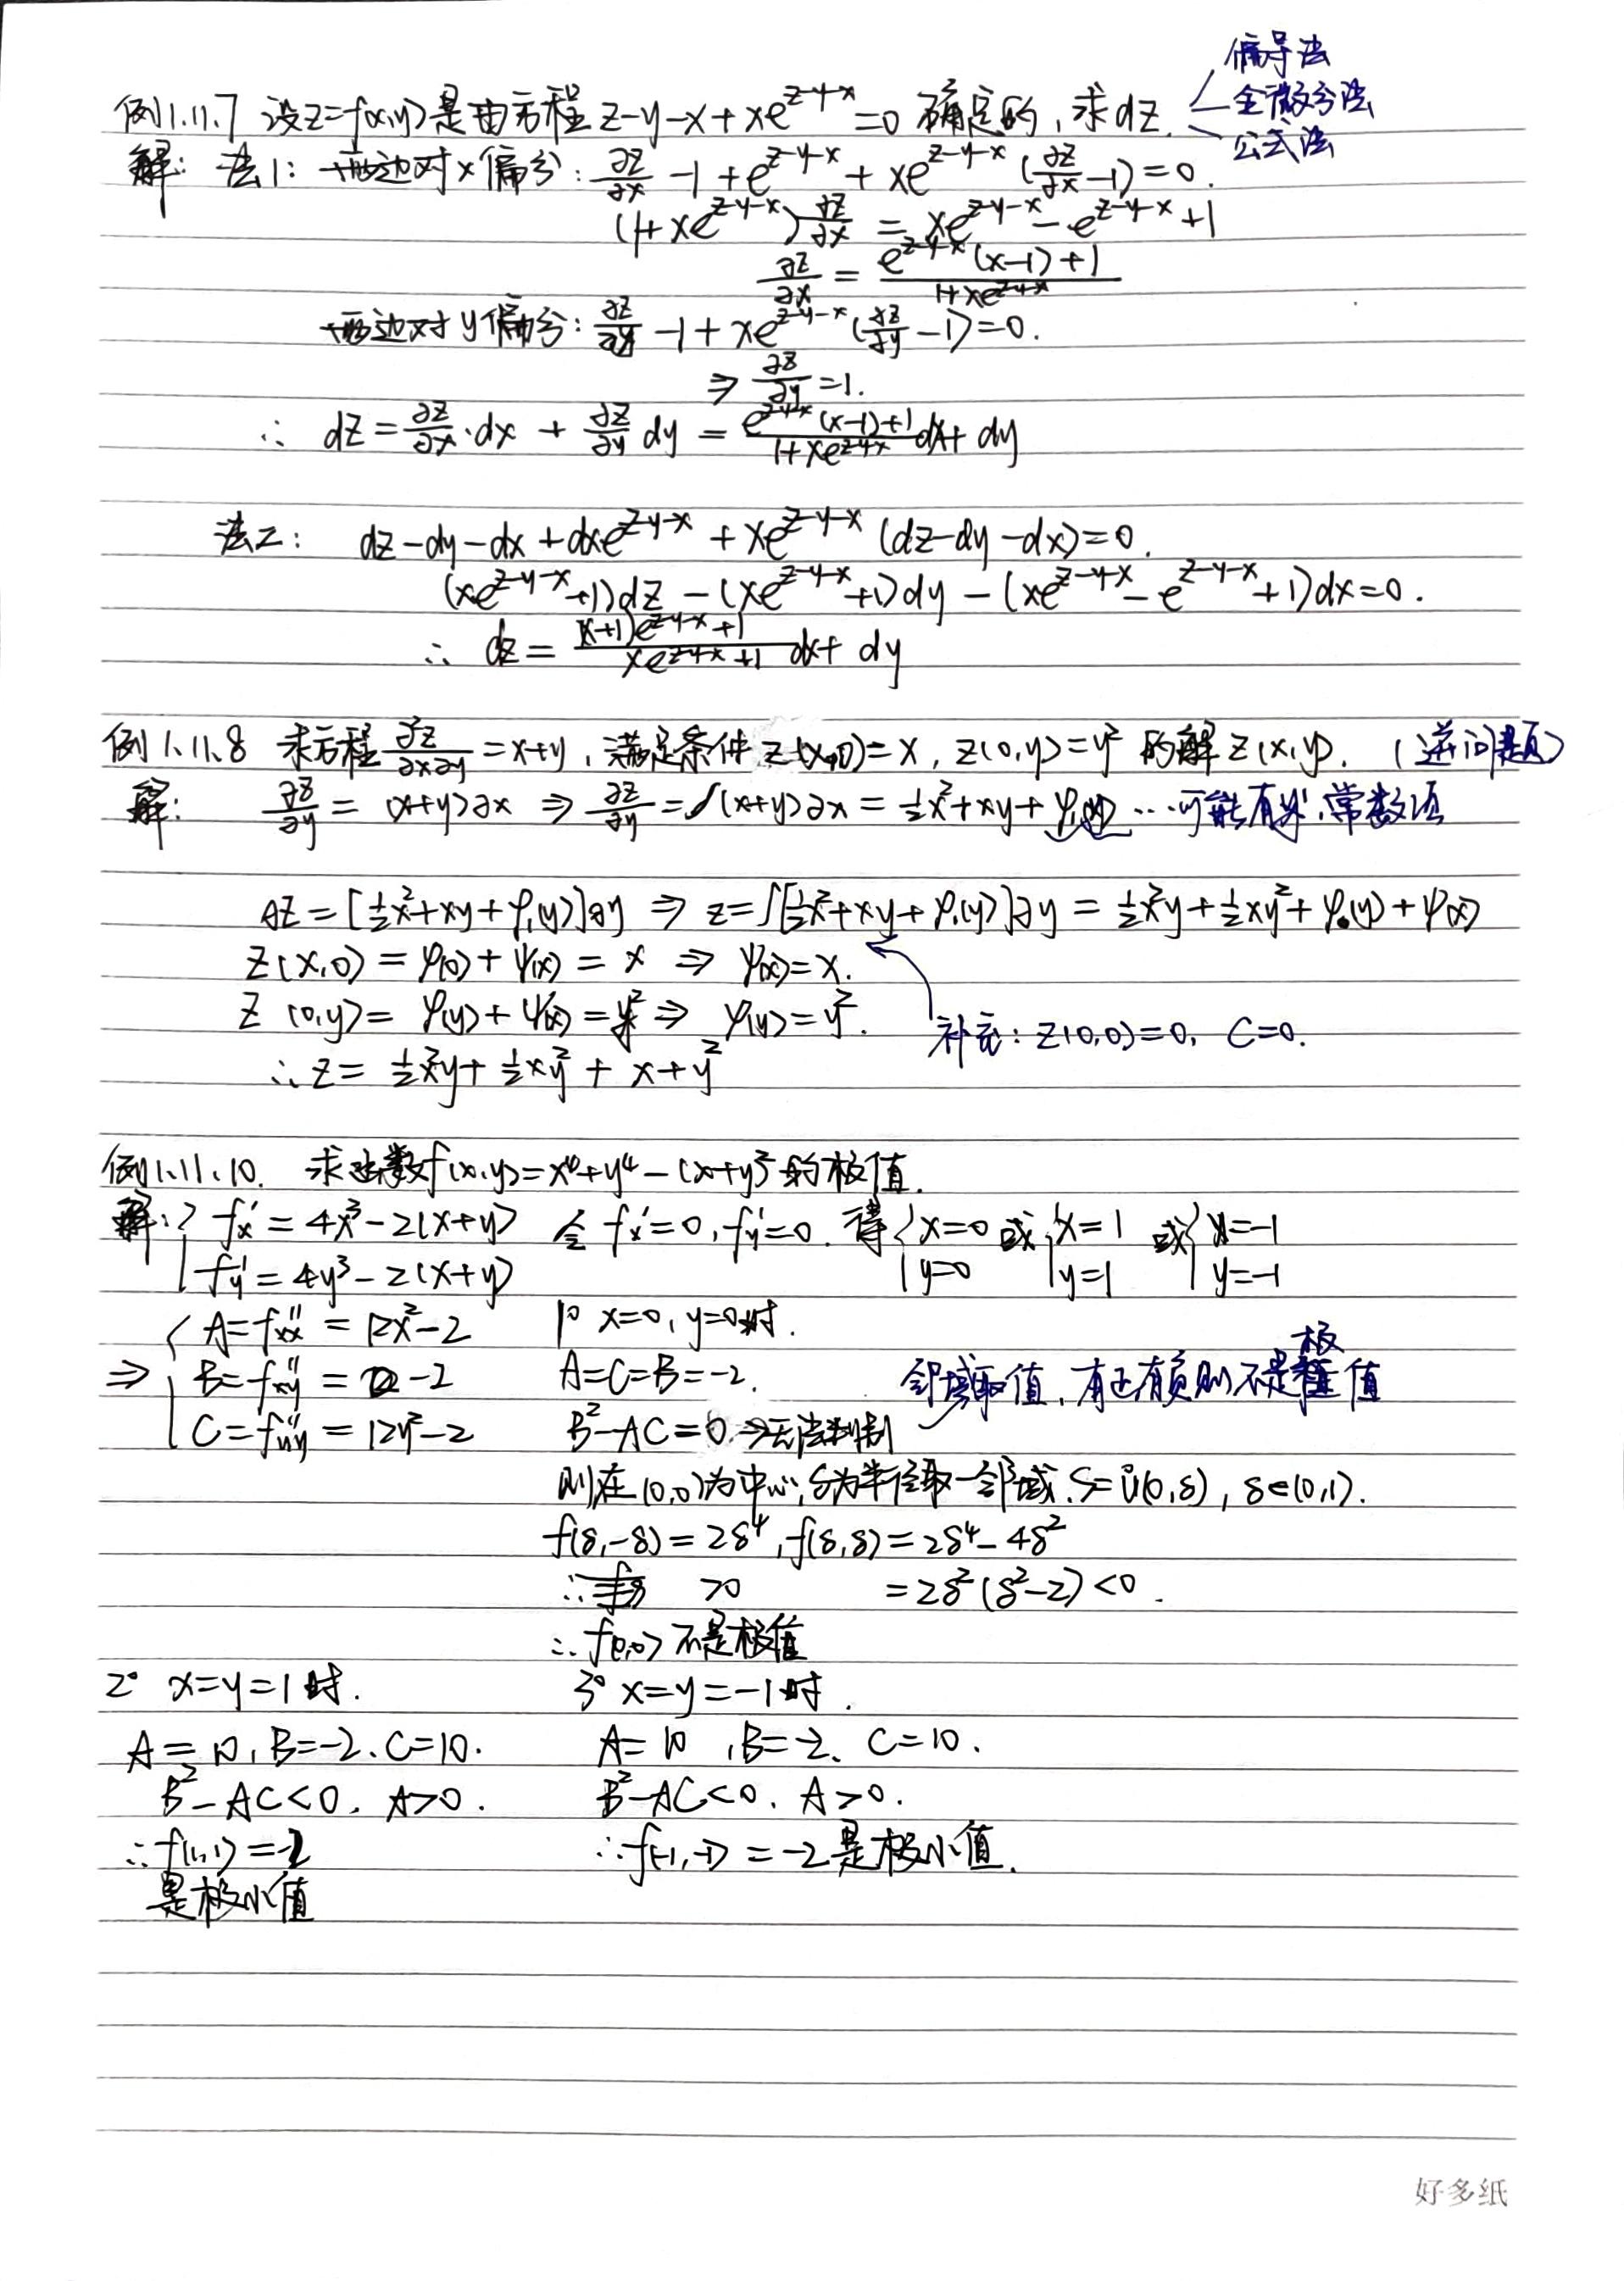 偏导法
例1.11.7 设z=f(x,y)是由方程 z-y-x+xe^{z-y-x}=0 确定的,求dz. 全微分法
公式法
解: 法1: 两边对x偏分: ∂z/∂x -1+e^{z-y-x}+xe^{z-y-x}(∂z/∂x-1)=0.
(1+xe^{z-y-x})∂z/∂x = xe^{z-y-x}-e^{z-y-x}+1
∂z/∂x = (e^{z-y-x}(x-1)+1)/(1+xe^{z-y-x})
两边对y偏分: ∂z/∂y -1+xe^{z-y-x}(∂z/∂y-1)=0.
⇒ ∂z/∂y=1.
∴ dz=∂z/∂x·dx+∂z/∂y dy = (e^{z-y-x}(x-1)+1)/(1+xe^{z-y-x})dx+dy
法2: dz-dy-dx+dxe^{z-y-x}+xe^{z-y-x}(dz-dy-dx)=0.
(xe^{z-y-x}+1)dz-(xe^{z-y-x}+1)dy-(xe^{z-y-x}-e^{z-y-x}+1)dx=0.
∴ dz=((x+1)e^{z-y-x}+1)/(xe^{z-y-x}+1) dx+dy
例1.11.8 求方程 ∂²z/∂x∂y=x+y,满足条件 z(x,0)=x, z(0,y)=y² 的解z(x,y). (逆问题)
解: ∂z/∂y=(x+y)∂x ⇒ ∂z/∂y=∫(x+y)∂x=½x²+xy+φ₁(y) …可能有y,常数项
∂z=[½x²+xy+φ₁(y)]∂y ⇒ z=∫[½x²+xy+φ₁(y)]∂y=½x²y+½xy²+φ(y)+ψ(x)
z(x,0)=φ(0)+ψ(x)=x ⇒ ψ(x)=x.
z(0,y)=φ(y)+ψ(x)=y² ⇒ φ(y)=y². 补充: z(0,0)=0, C=0.
∴z=½x²y+½xy²+x+y²
例1.11.10. 求函数f(x,y)=x⁴+y⁴-(x+y)²的极值.
解: { fx'=4x³-2(x+y) 令fx'=0,fy'=0.得{x=0 或{x=1 或{x=-1
fy'=4y³-2(x+y) y=0 y=1 y=-1
{ A=fxx''=12x²-2 1° x=0,y=0时.
⇒ B=fxy''=-2 A=C=B=-2. 邻域取值,有正有负则不是极值
C=fyy''=12y²-2 B²-AC=0⇒无法判别
则在(0,0)为中心,δ为半径取一邻域.S=Ů(0,δ), δ∈(0,1).
f(δ,-δ)=2δ⁴,f(δ,δ)=2δ⁴-4δ²
∴ >0 =2δ²(δ²-2)<0.
∴f(0,0)不是极值
2° x=y=1时. 3° x=y=-1时.
A=10,B=-2、C=10. A=10,B=-2、C=10.
B²-AC<0, A>0. B²-AC<0, A>0.
∴f(1,1)=-2 ∴f(-1,-1)=-2是极小值.
是极小值
好多纸